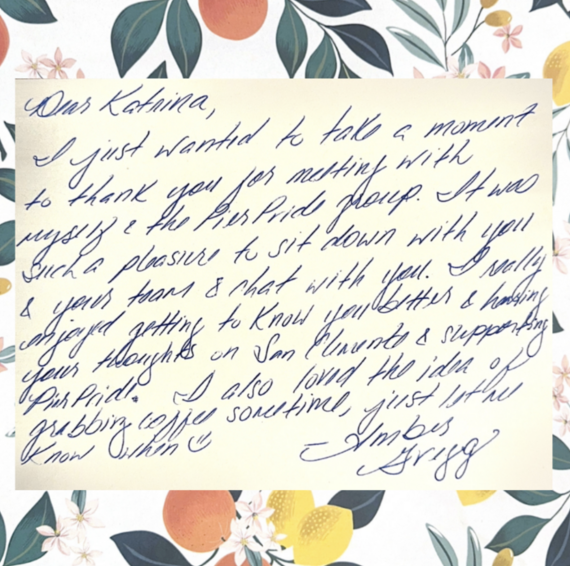 Dear Katrina,
I just wanted to take a moment
to thank you for meeting with
myself & the PierPride group. It was
such a pleasure to sit down with you
& your team & chat with you. I really
enjoyed getting to know you better & hearing
your thoughts on San Clemente & supporting
PierPride. I also loved the idea of
grabbing coffee sometime, just let me
know when ☺
- Amber
Grigg